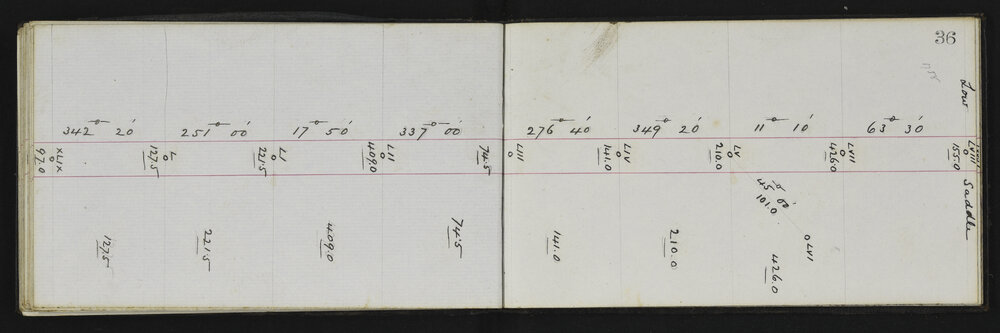 36
Low
342° 20′
251° 00′
17° 50′
337° 00′
276° 40′
349° 20′
11° 10′
63° 30′
XLIX
97.0
L
127.5
LI
221.5
LII
409.0
74.5
LIII
LIV
141.0
LV
210.0
LVII
426.0
LVIII
155.0
Saddle
45° 00′
101.0
LVI
127.5
221.5
409.0
74.5
141.0
210.0
426.0